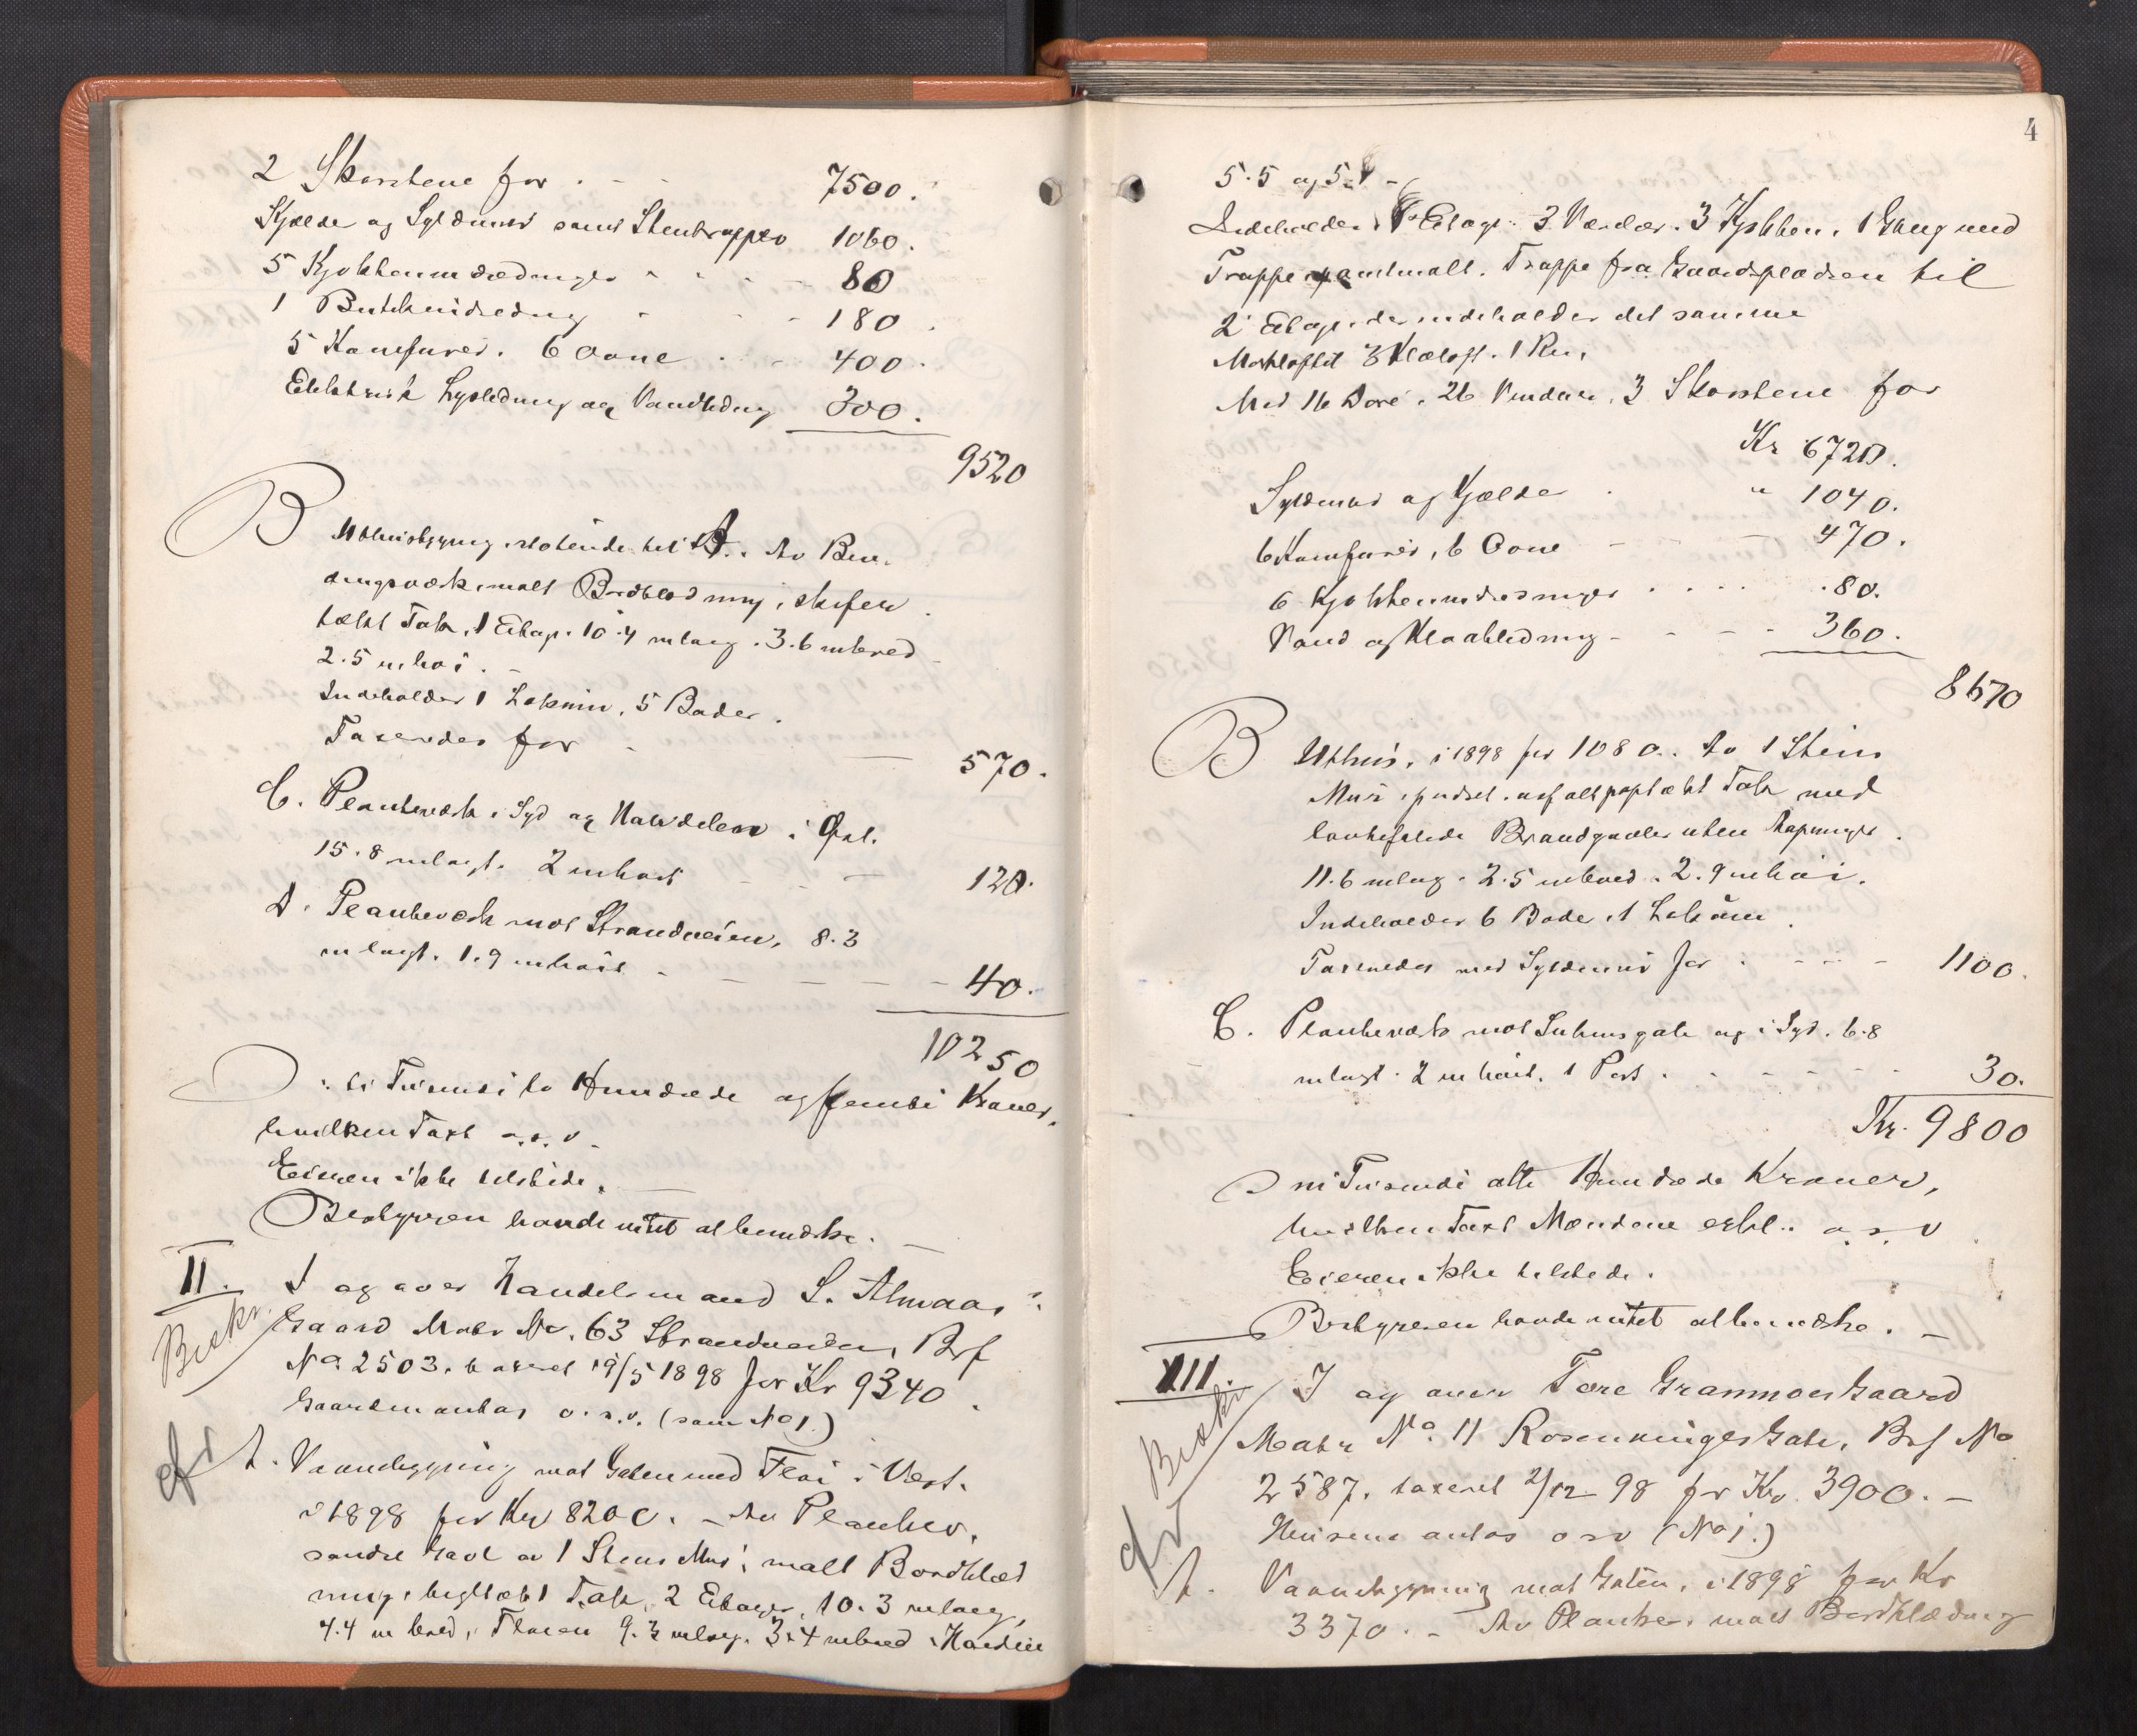 2 Skorstene for . - - 7500.
Kjælder og Syldmur samt Stentrapper 1060.
5 Kjøkkenindredninger - - - 80
1 Butikindredning - - - 180.
5 Komfurer. 6 Ovne . - - 400.
Elektrisk Lysledning og Vandledning 300.
9520
B Uthusbygning stötende til A. Av Bin-
dingsværk, malt Bordklædning, skifer
tækt Tak, 1 Etage. 10.4 m lang. 3.6 m bred
2.5 m høi. -
Indeholder 1 Lokum, 5 Boder.
Taxeredes for - — 570.
C. Plankeværk i Syd og Havedelen i Øst.
15.8 m langt. 2 m høit - - — 120.
D. Plankeværk mot Strandveien, 8.3
m langt. 1.9 m høit - - - - - 40.
10250
ti Tusinde to Hundrede og femti Kroner,
hvilken Taxt o.s.v. -
Eieren ikke tilstede. —
Bestyreren havde intet at bemærke. —
II. I og over Handelsmand S. Almaas'
Beskr. Gaard Matr No. 63 Strandveien, Brf
No 2503. taxeret 19/5 1898 for Kr 9340.
Gaarden antas o.s.v. (som No 1.)
A. Vaaningsbygning mot Gaten med Fløi i Vest.
i 1898 for Kr 8200. - Av Plankev.
søndre Gavl av 1 Stens Mur, malt Bordklæd
ning, tegltækt Tak, 2 Etager, 10.3 m lang,
4.4 m bred, Fløien 9.3 m lang. 3.4 m bred. Høiden
4
5.5 og 5.1 -
Indeholder 1ste Etage: 3 Værelser. 3 Kjøkken, 1 Gang med
Trappe, malt. Trappe fra Gaardspladsen til
2. Etage, der indeholder det samme
Mørkloftet 3 Kleloft. 1 Rum,
Med 16 Døre. 26 Vinduer, 3 Skorstene for
Kr 6720.
Syldmur og Kjælder . " 1040.
6 Komfurer, 6 Ovne - - - 470.
6 Kjøkkenindredninger . . . . 80.
Vand og Kloakledning - - - - 360.
8670
B Uthus, i 1898 for 1080.. Av 1 Stens
Mur, pudset, asfaltpaptækt Tak med
Brandgavler uten Aapninger.
11.6 m lang. 2.5 m bred. 2.9 m høi.
Indeholder 6 Boder, 1 Lokum.
Taxeredes med Syldmur for . - - - 1100.
C. Plankeværk mot Suhmsgate og i Syd. 6.8
m langt. 2 m høit. 1 Port . - - - - 30.
Kr. 9800
ni Tusinde otte Hundrede Kroner,
hvilken Taxt Mændene erkl.. o.s.v.
Eieren ikke tilstede.
Bestyreren havde intet at bemærke. —
III. I og over Tore Grammoes Gaard
Beskr. Matr No. 11 Rosenkrings Gate, Brf No
2587, taxeret 2/12 98 for Kr. 3900. -
Husene antas o s v (No 1.)
A. Vaaningsbygning mot Gaten, i 1898 for Kr
3370. - Av Planker, malt Bordklædning